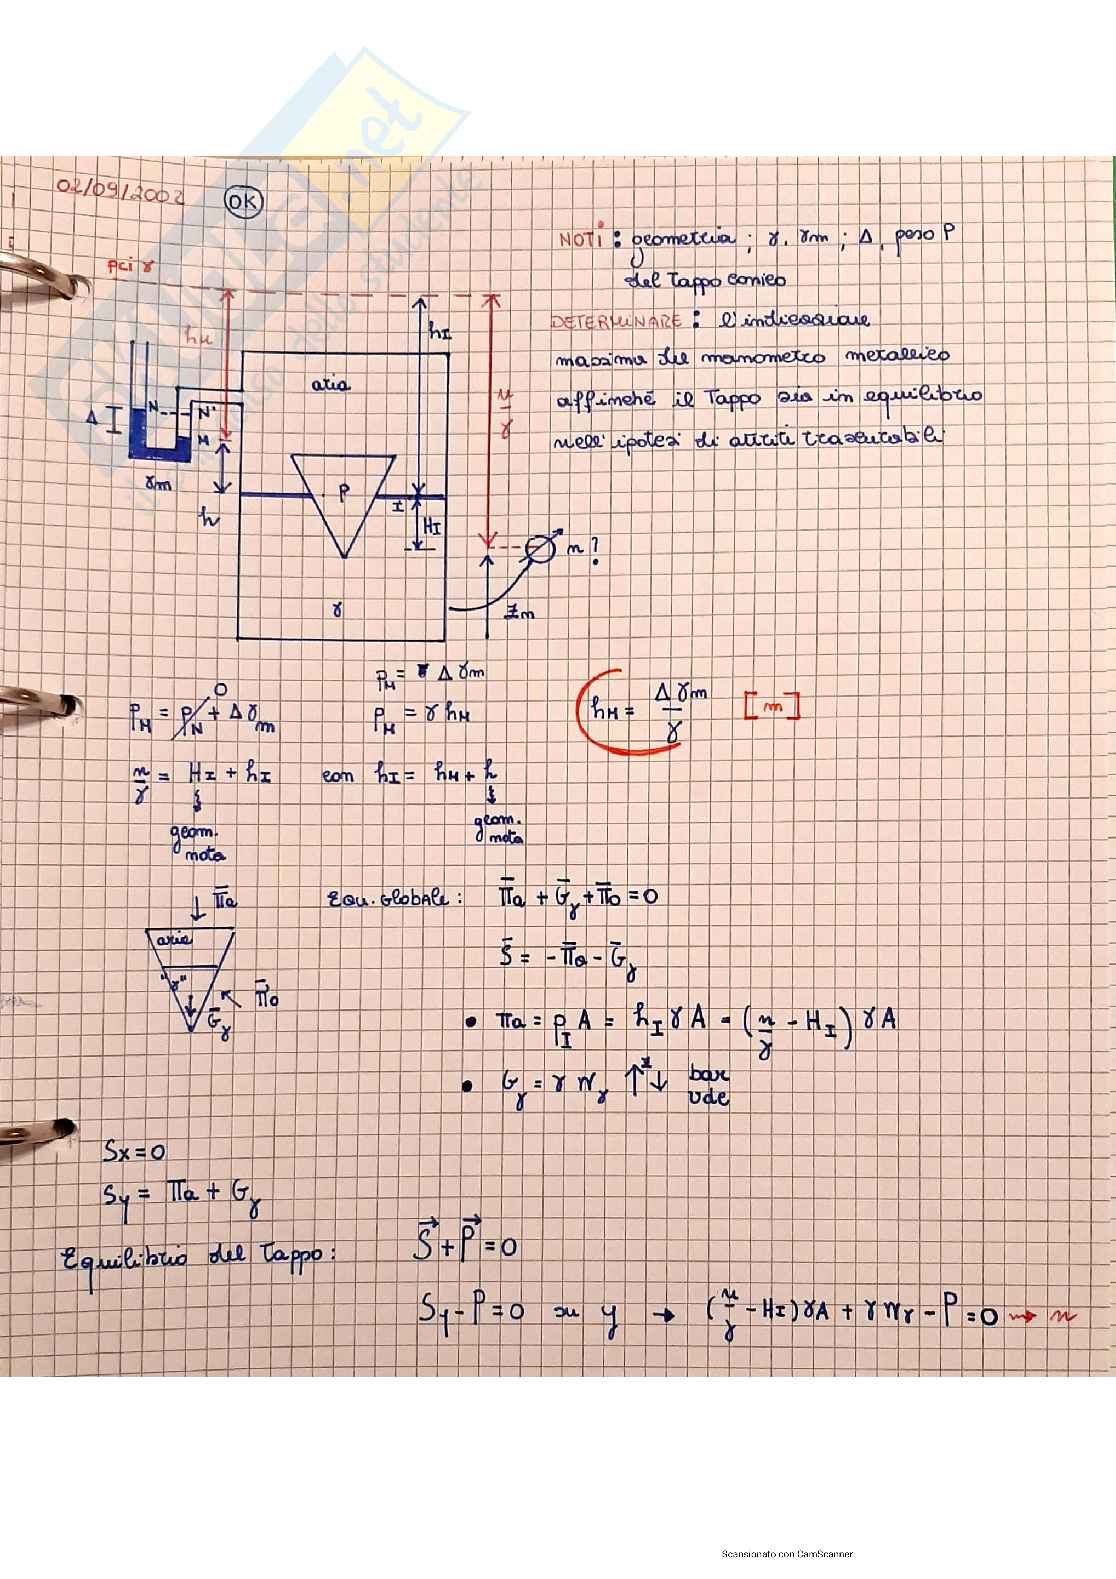 02/09/2002 OK
NOTI : geometria ; γ, γm ; Δ, peso P
del tappo conico
DETERMINARE : l'indicazione
massima del manometro metallico
affinché il tappo sia in equilibrio
nell'ipotesi di attriti trascurabili
pci γ
hM
hI
n/γ
aria
Δ
N
N'
M
γm
h
P
I
HI
n?
γ
Zm
pM = Δ γm
pM = pN + Δ γm
0
pM = γ hM
hM = Δ γm / γ [m]
n/γ = HI + hI con hI = hM + h
geom. nota
geom. nota
Πa
aria
"γ"
Π0
Gγ
Equ. Globale : Πa + Gγ + Π0 = 0
S = - Π0 - Gγ
• Πa = pI A = hI γ A = (n/γ - HI) γ A
• Gγ = γ Wγ
Sx = 0
Sy = Πa + Gγ
Equilibrio del tappo : S + P = 0
Sy - P = 0 su y → (n/γ - HI) γA + γ Wγ - P = 0 → n
Scansionato con CamScanner